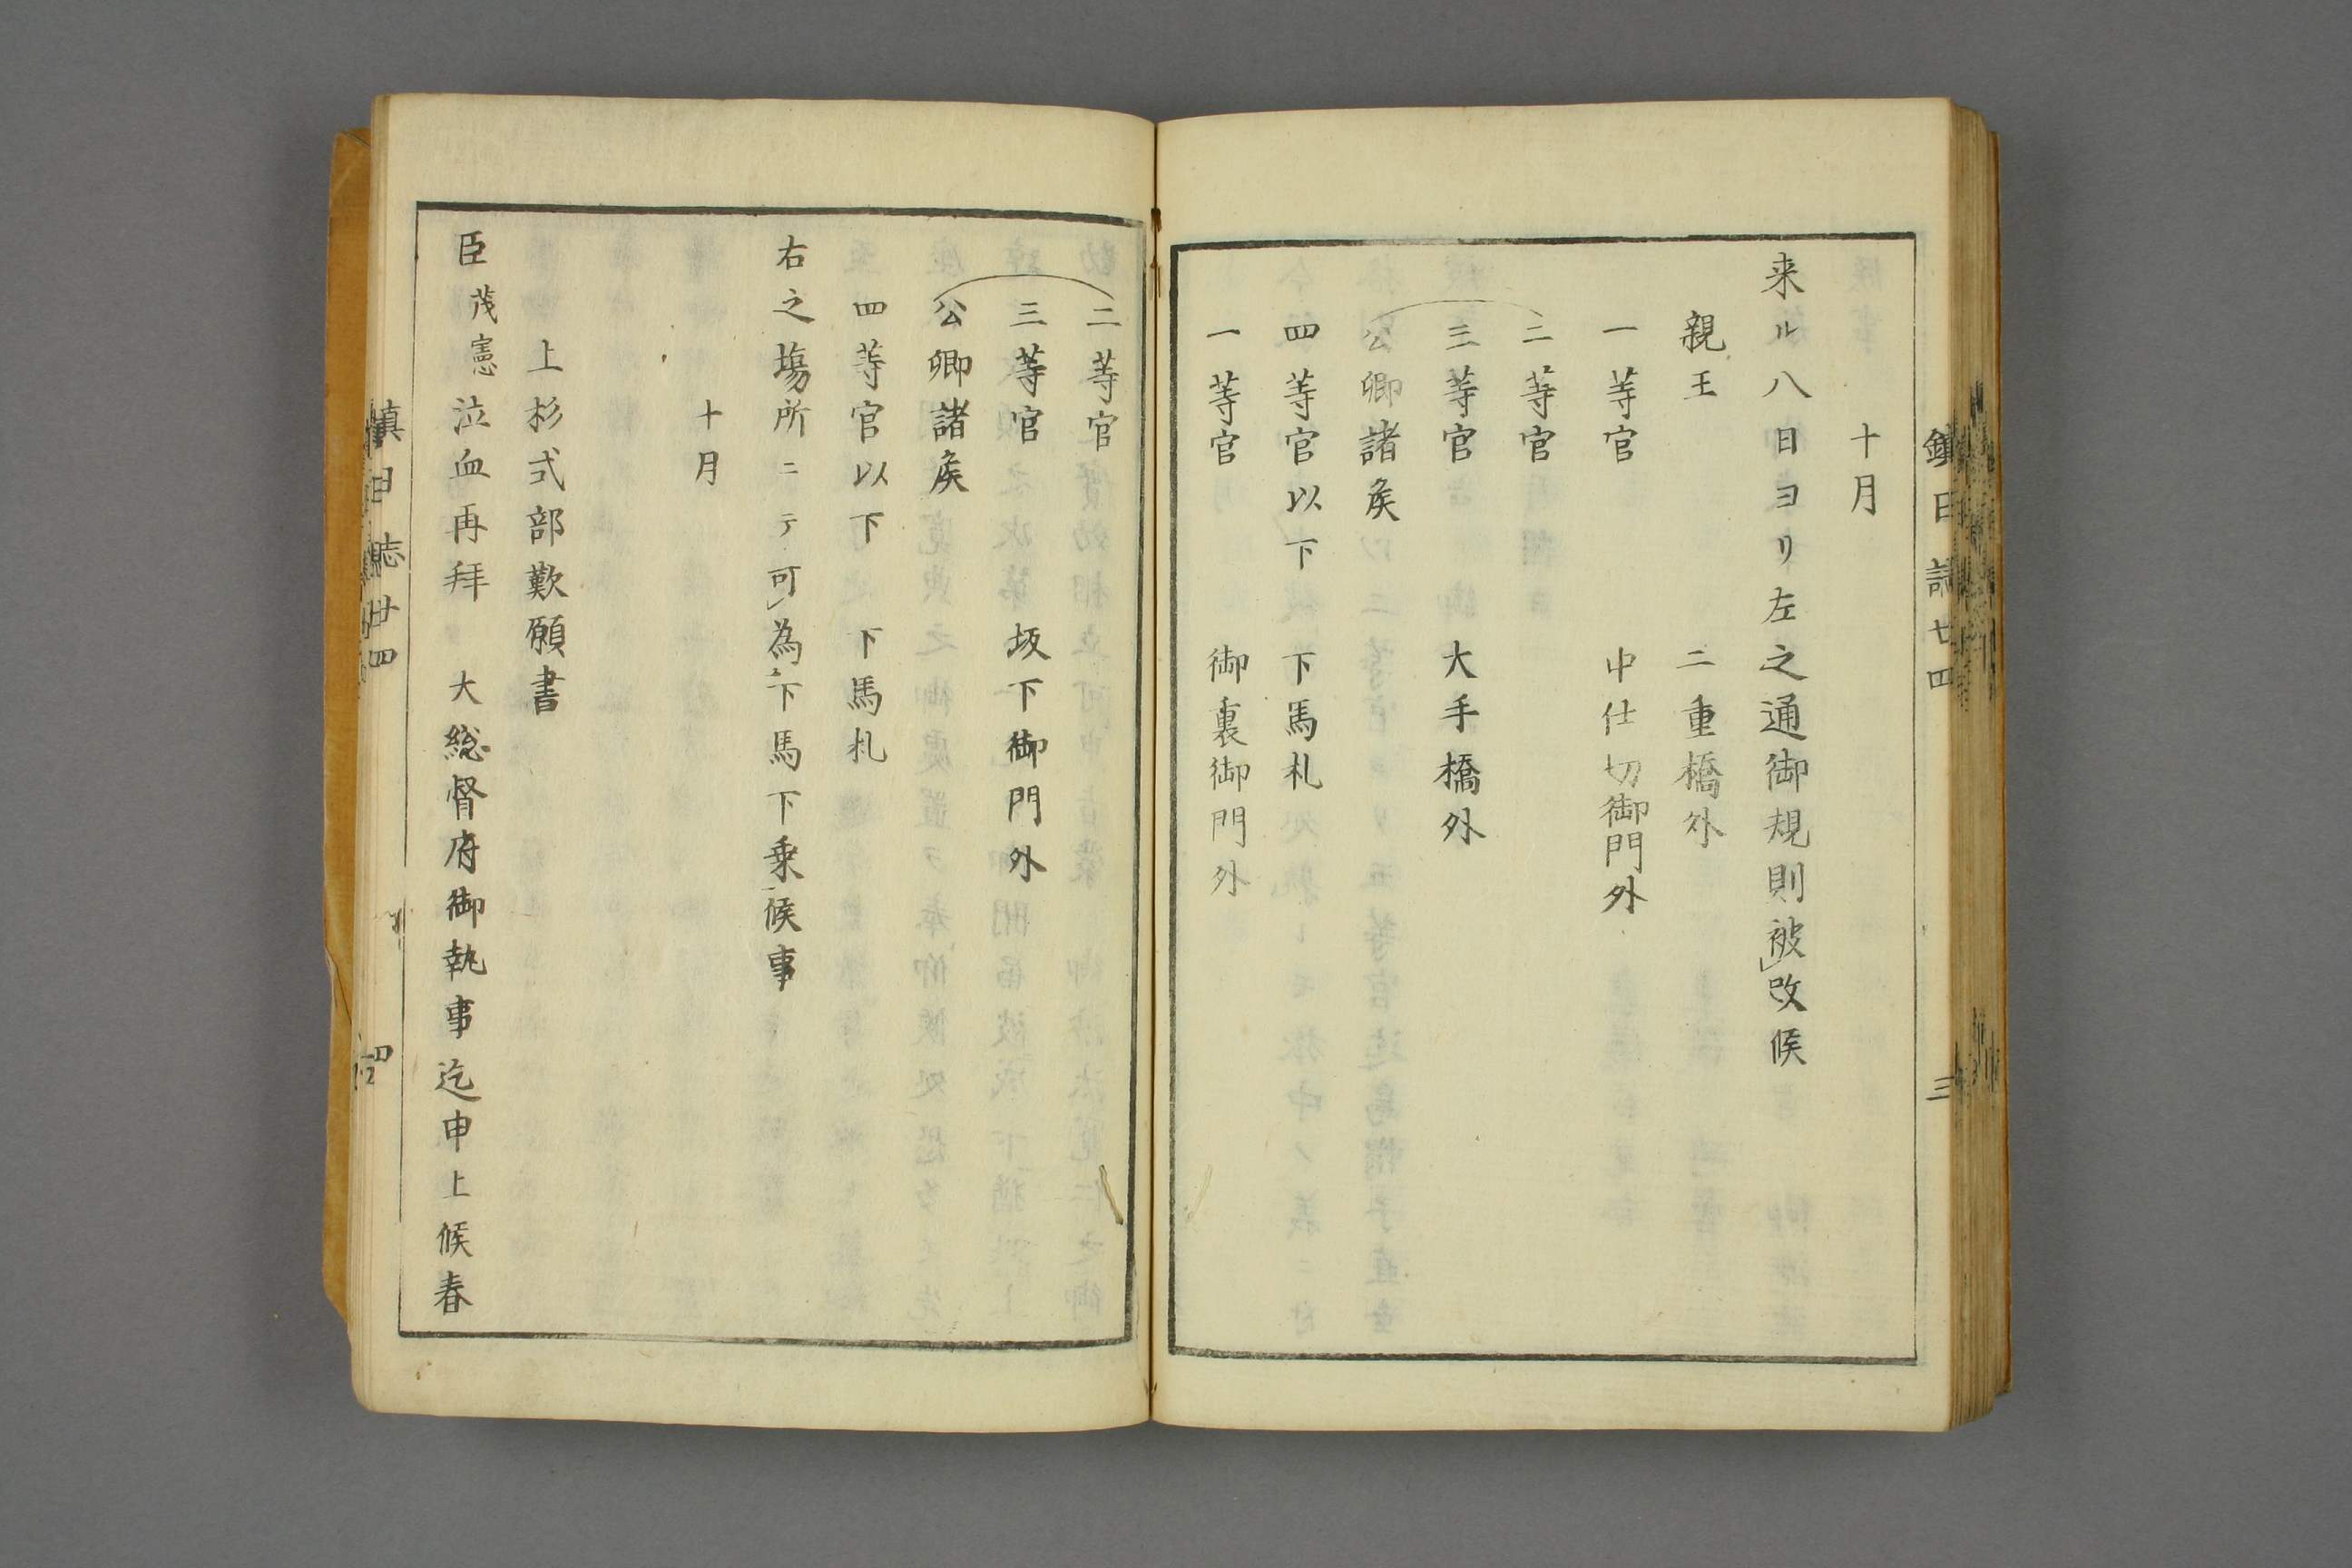 鎮日誌廿四
三
十月
来ル八日ヨリ左之通御規則被改候
親王 二重橋外
一等官 中仕切御門外
二等官
三等官 大手橋外
公卿諸矦
四等官以下 下馬札
一等官 御裏御門外
二等官
三等官 坂下御門外
公卿諸矦
四等官以下 下馬札
右之塲所ニテ可為下馬下乗候事
十月
上杉式部歎願書
臣茂憲泣血再拜 大総督府御執事迄申上候春
鎮日誌廿四
四